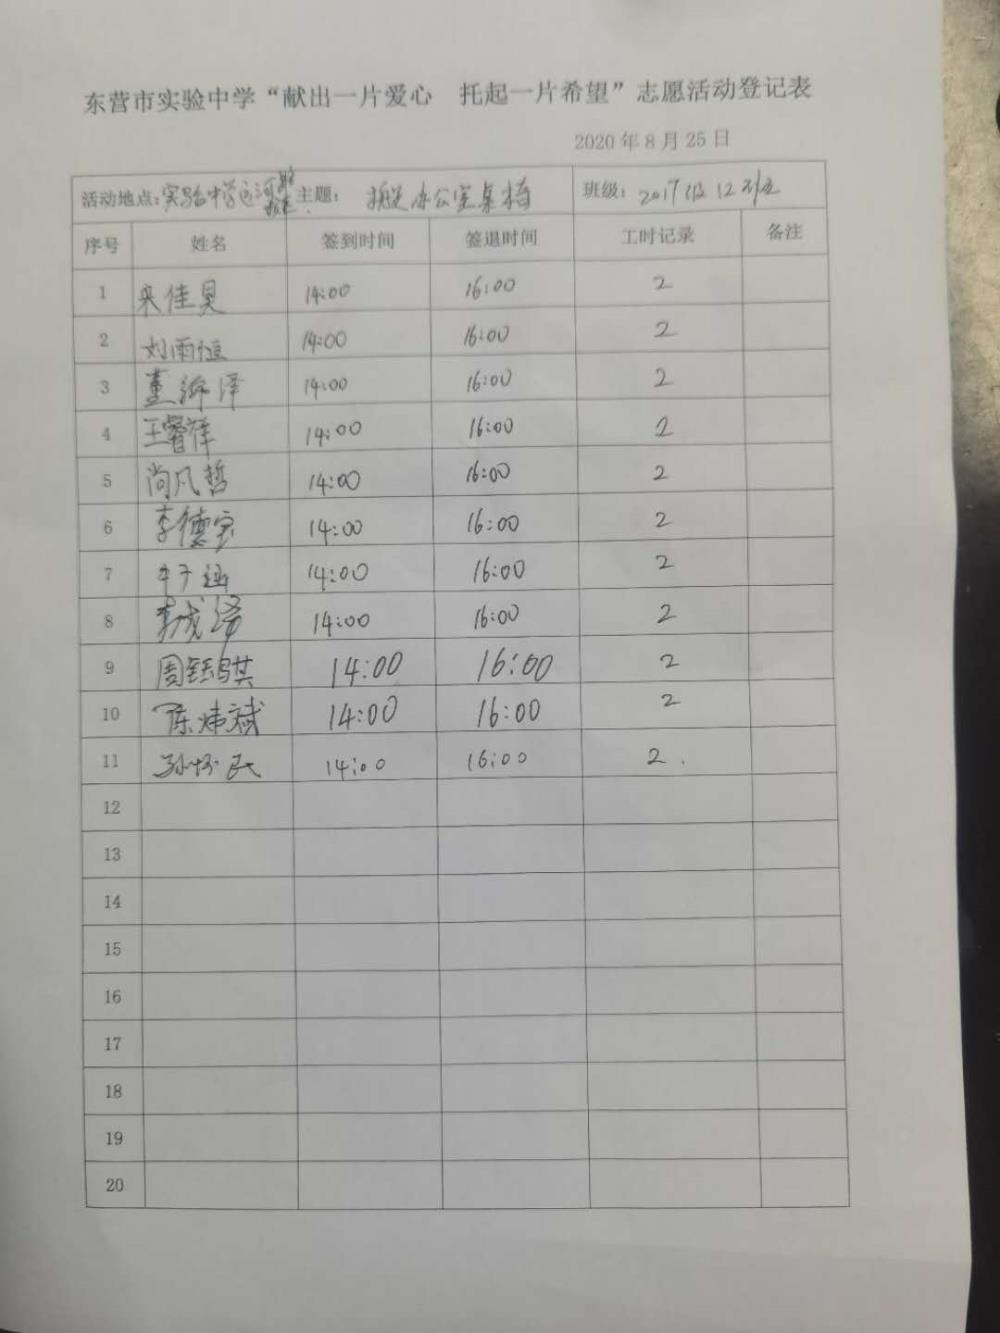 东营市实验中学“献出一片爱心 托起一片希望”志愿活动登记表
2020年8月25日
活动地点：实验中学运河 主题： 搬运办公室桌椅 班级：2017级12班
序号 姓名 签到时间 签退时间 工时记录 备注
1 宋佳昊 14:00 16:00 2
2 刘雨恒 14:00 16:00 2
3 董 泽 14:00 16:00 2
4 王睿祥 14:00 16:00 2
5 尚凡哲 14:00 16:00 2
6 李德宝 14:00 16:00 2
7 牛子涵 14:00 16:00 2
8 李成泽 14:00 16:00 2
9 周钰骐 14:00 16:00 2
10 陈炜斌 14:00 16:00 2
11 孙怀民 14:00 16:00 2.
12
13
14
15
16
17
18
19
20